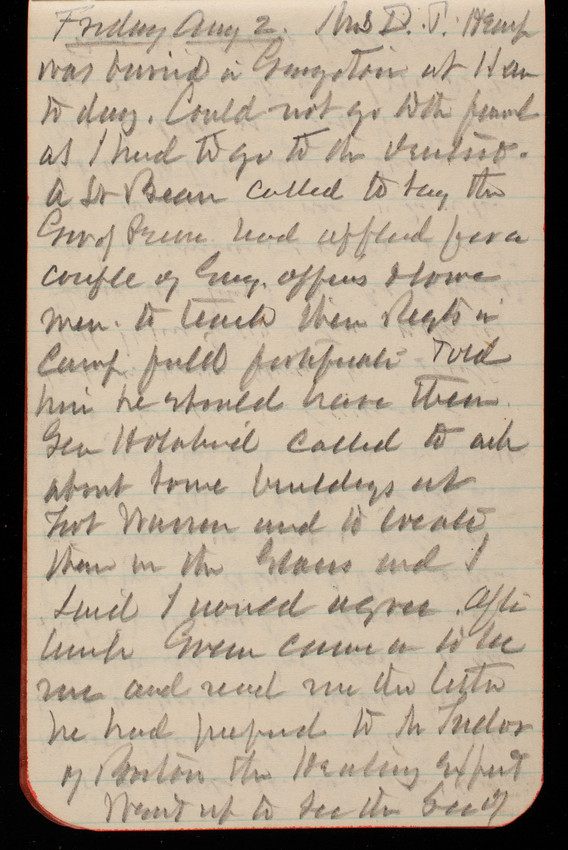 Friday Aug 2. Mrs D. T.
was buried in Georgetown at 11 am
to day. Could not go to the funeral
as I had to go to the dentist.
A Lt Bean called to say the
Gov of had applied for a
couple of Eng. officers & some
men. to teach their Regts in
Camp field fortificati Told
him he should have them
Gen Holabird called to ask
about some buildings at
Fort Warren and to locate
them on the Glacis and I
said I would agree. After
lunch Green came in to see
me and read me the letter
he had prepared to Dr Tudor
of Boston the Heating expert
Went up to see the Secy